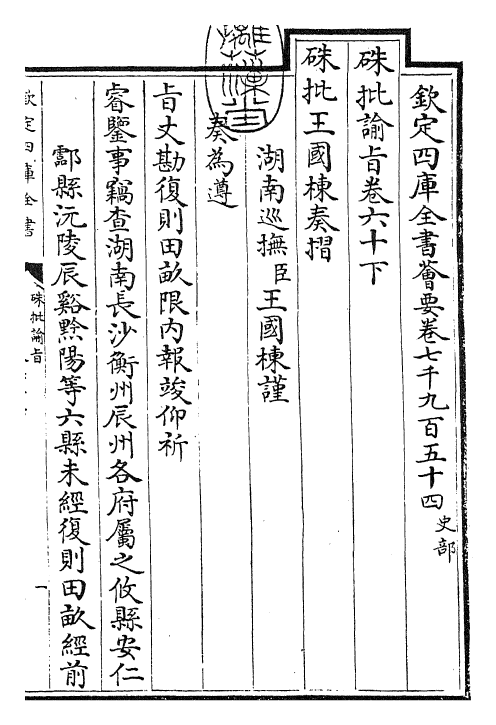 欽定四庫全書薈要卷七千九百五十四 史部
硃批諭旨卷六十下
硃批王國棟奏摺
湖南巡撫臣王國棟謹
奏為遵
旨丈勘復則田畝限内報竣仰祈
睿鑒事竊查湖南長沙衡州辰州各府屬之攸縣安仁
酃縣沅陵辰谿黔陽等六縣未經復則田畝經前
欽定四庫全書
硃批諭旨
一